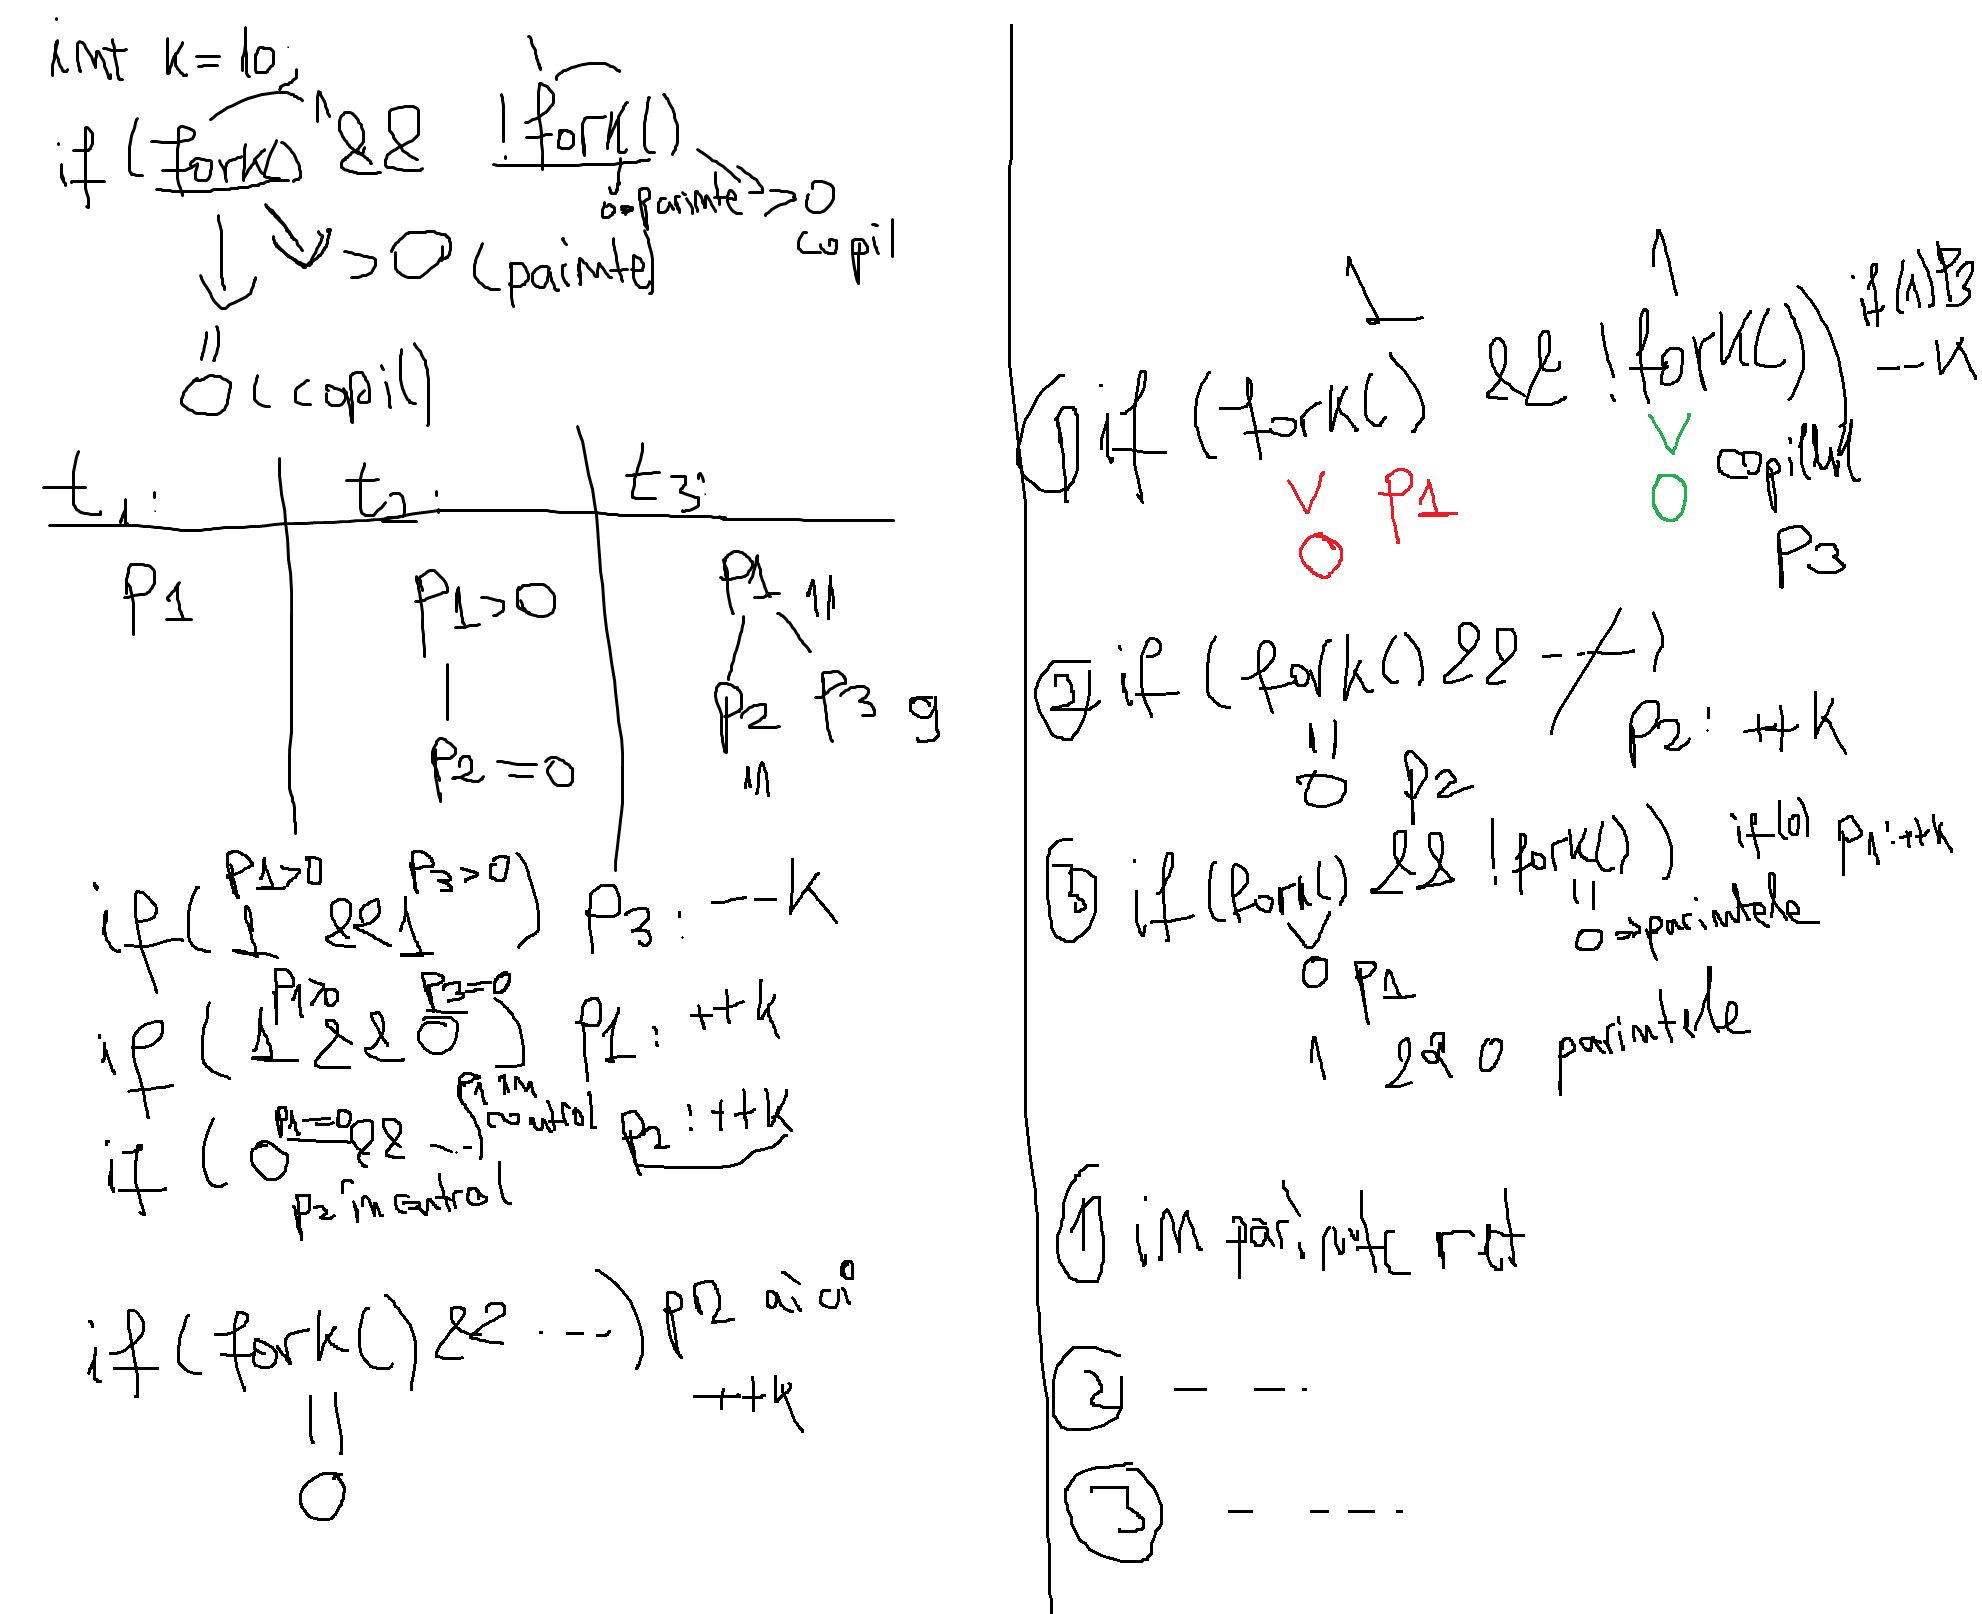 int k=10;
if (fork() && !fork()
1
1
0→parinte >0
copil
>0 (painte)
=
0 (copil)
t1: t2: t3:
P1
P1>0
P2=0
P1 11
P2 P3 9
11
P1>0 P3>0
if( 1 && 1 ) P3: --k
P1>0 P3=0
if ( 1 && 0 ) P1: ++k
P1 in control
P1=0
if ( 0 && ... ) P2: ++k
P2 in control
if (fork() && ...) P2 aici
++k
=
0
1 1 if(1) P3
① if (fork() && !fork()) --k
> P1 > copilul
0 0 P3
② if (fork() && ---)
P2: ++k
=
0 P2
③ if (fork() && !fork()) if(0) P1:++k
> =
0 P1 0 → parintele
1 && 0 parintele
① in parinte ret
② - - -
③ - - - -